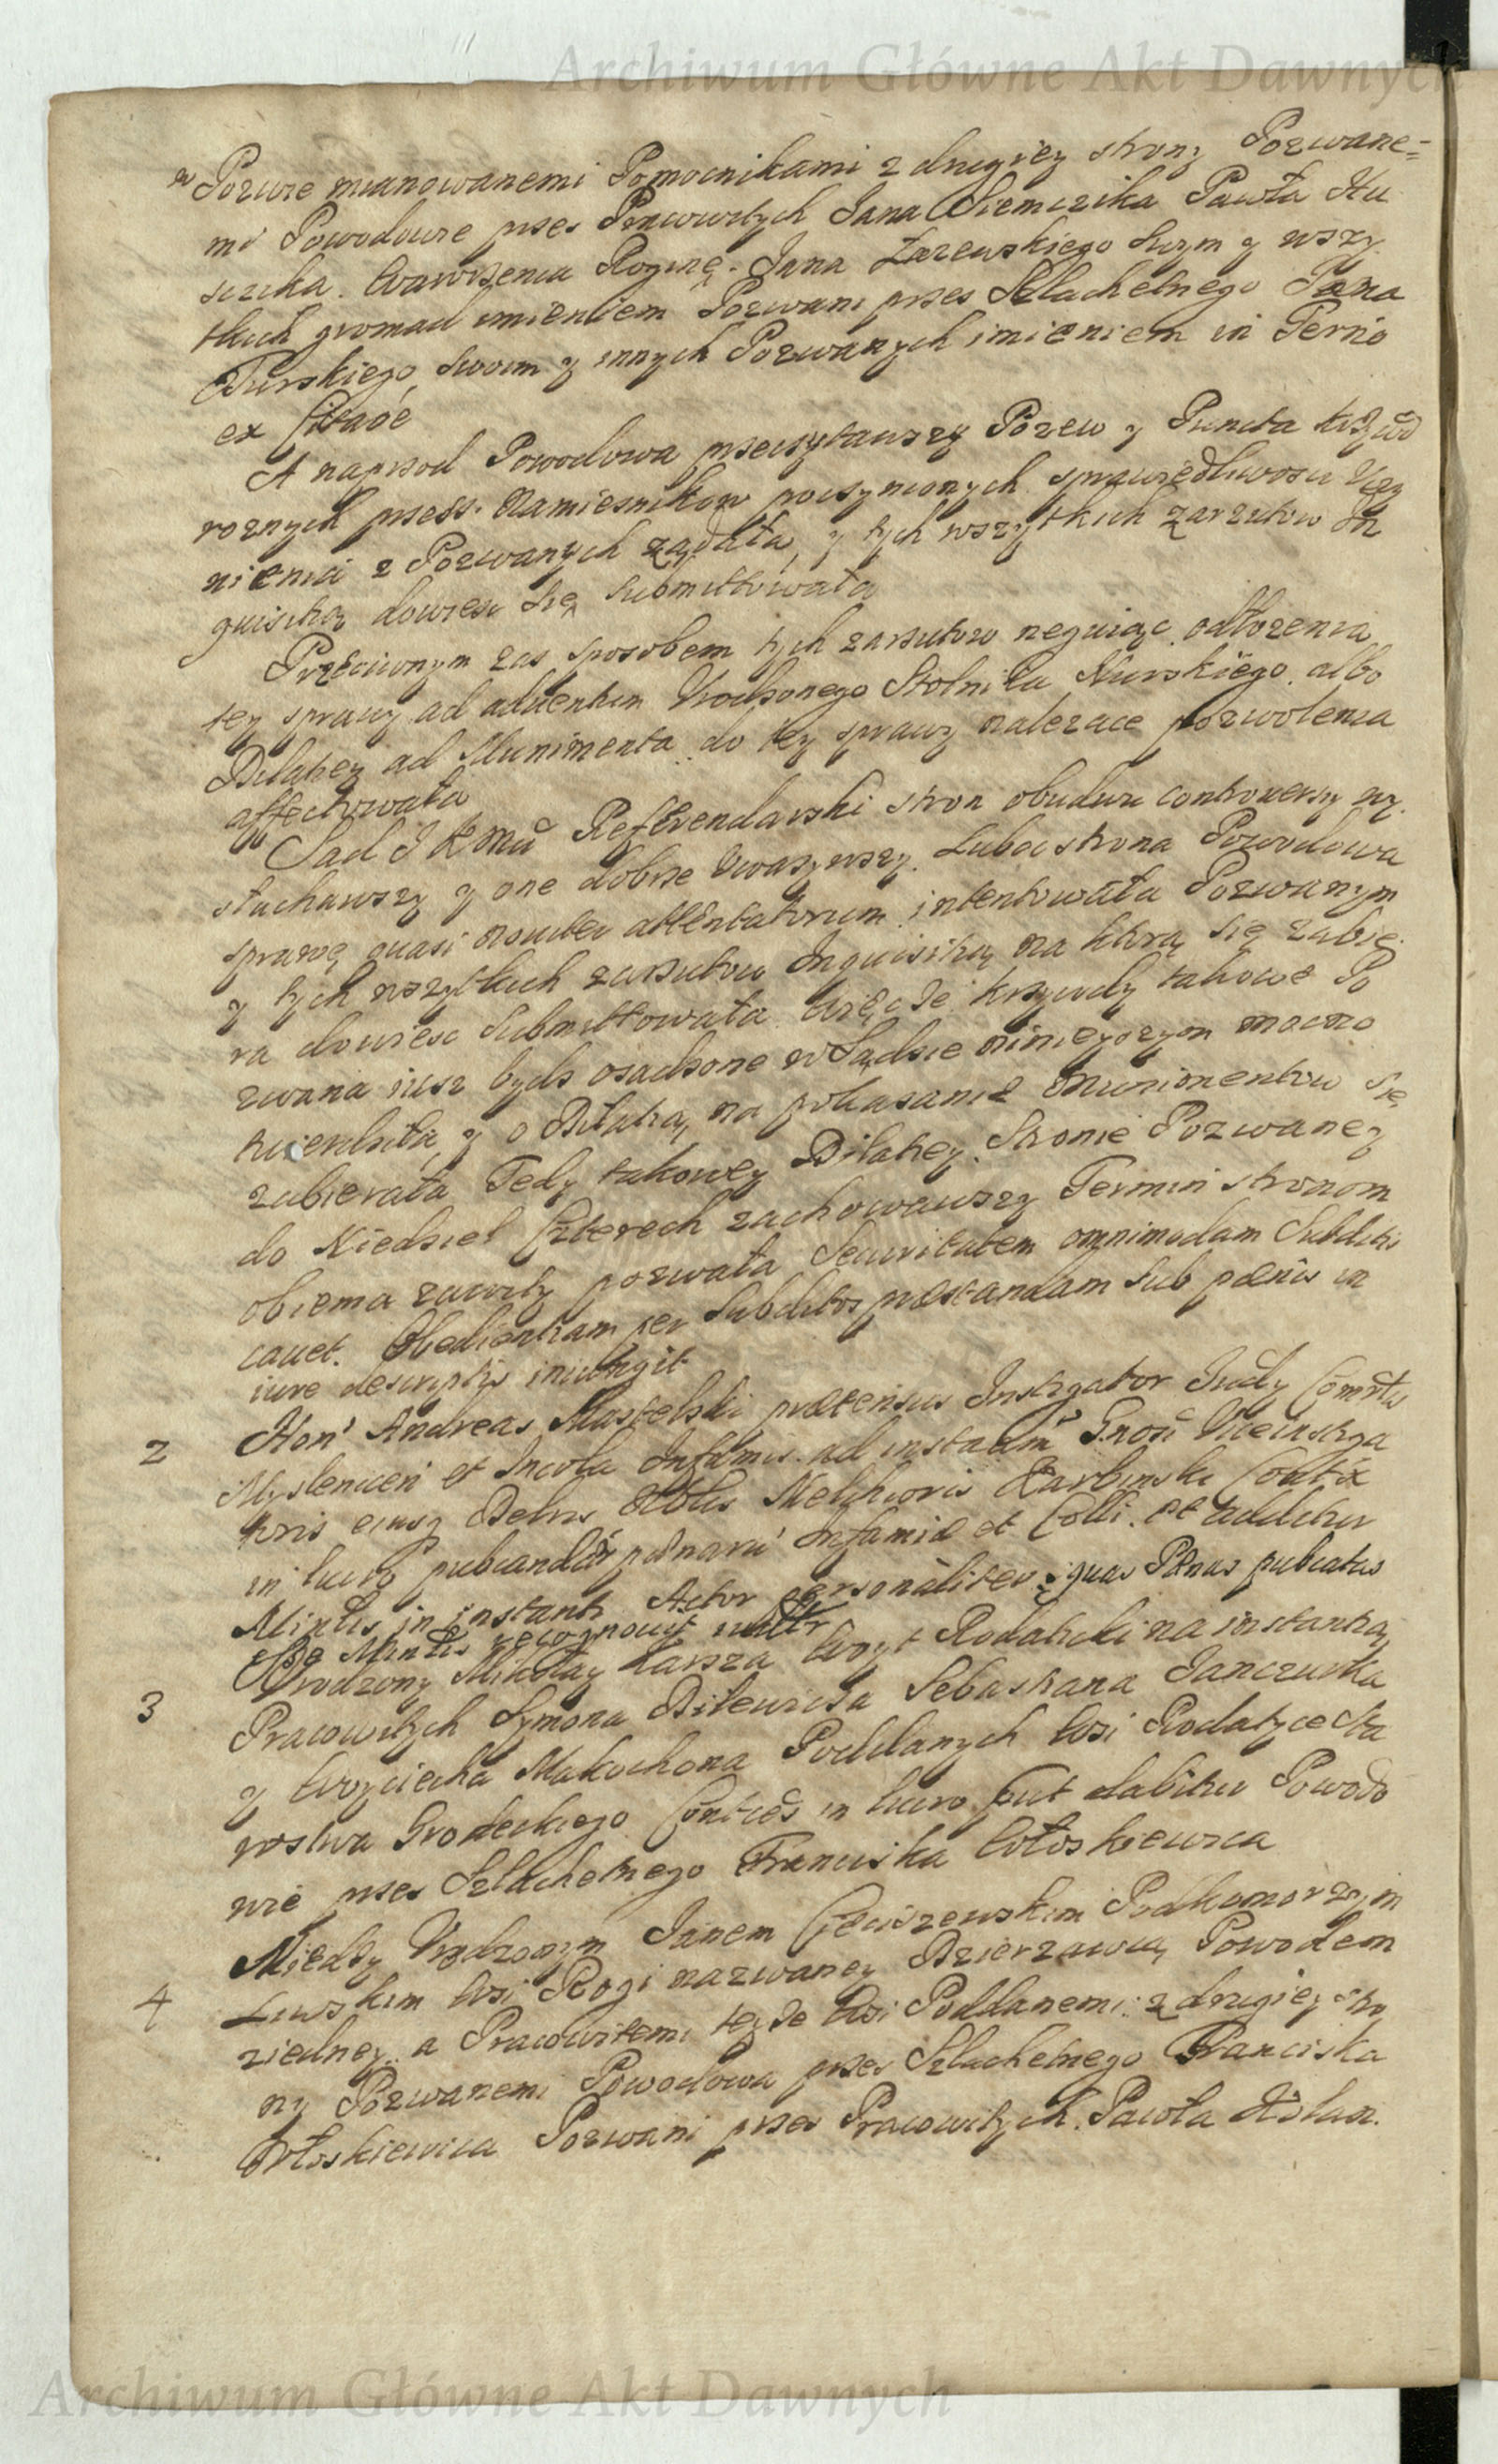 Archiwum Główne Akt Dawnych
w Pozwie mianowanemi Pomocnikami z drugiey strony Pozwane=
mi Powodowie przez Pracowitych Jana Siemczika Pawła Hu
siczka. Wawrzenca Rogine. Jana Łazewskiego swym y wszy
tkich gromad imieniem Pozwani przez Szlachetnego Pana
Purskiego swoim y innych Pozwanych imieniem in Terno
ex Citaoe
A naprzod Powodowa przeczytawszy Pozew y Puncta krzywd
roznych przess. Namiesnikow poczynionych sprawiedliwosci Uczy
nienia z Pozwanych ządała, y tych wszytkich zarzutow In
quisitią dowiesc się submittowała
Przeciwnym zas sposobem tych zarzutow neguiąc odłozenia
tey sprawy ad adventum Urodzonego Stolnika Nurskiego. albo
Dilatiey ad Munimenta do tey sprawy nalezace pozwolenia
affectowała
Sad J K Mci Referendarski stron obudwu controwersy wy
słuchawszy y one dobrze Uwazywszy. Lubo strona Powodowa
sprawę quasi noviter attentatorum intentowała Pozwanym
y tych wszytkich zarzutow Inquisitią na ktorą się zabie
ra dowiesc submittowała więc ze krzywdy takowe Po
zwana iusz bydz osadzone w Sądzie ninieyszym mocno
twierdziła y o Dilatią na pokazanie Munimentow się
zabierała Tedy takowey Dilatiey Stronie Pozwaney
do Niedziel Czterech zachowawszy Termin stronom
obiema zawity pozwala Securitatem omnimodam Subditis
cavet. Obedientiam per Subditos præstandam sub pœnis in
iure descriptis iniungit
2 Hon' Andreas Mastelski prætensus Instigator Judy Comrtis
Myslenicen et Incola Infamis ad instam Gnosi Viceinstiga
toris eiusq Delris Nobilis Melchioris Karbinski Contix
in lucro publicandar pœnaru' Infamiæ et Colli. et additur
Mintis in instanti Actor personaliter quas Pœnas publicatas
Idem Mintis recognovit
3 Urodzony Mikołay Karsza Woyt Rodaticki na instantią
Pracowitych Symona Dilewicza Sebastiana Janczurka
y Woyciecha Makochona Poddanych Wsi Rodatyce Sta
rostwa Grodeckiego Contus in lucro put dabitur Powodo
wie przez Szlachetnego Franciska Wołoskiewica
4 Miedzy Urodzonym Janem Cieciszewskim Podkomorzym
Liwskim Wsi Rogi nazwaney Dzierzawcą Powodem
ziedney a Pracowitemi teyze Wsi Poddanemi z drugiey stro
ny Pozwanemi Powodowa przez Szlachetnego Franciska
Wołoskiewica Pozwani przez Pracowitych Pawła
Archiwum Główne Akt Dawnych